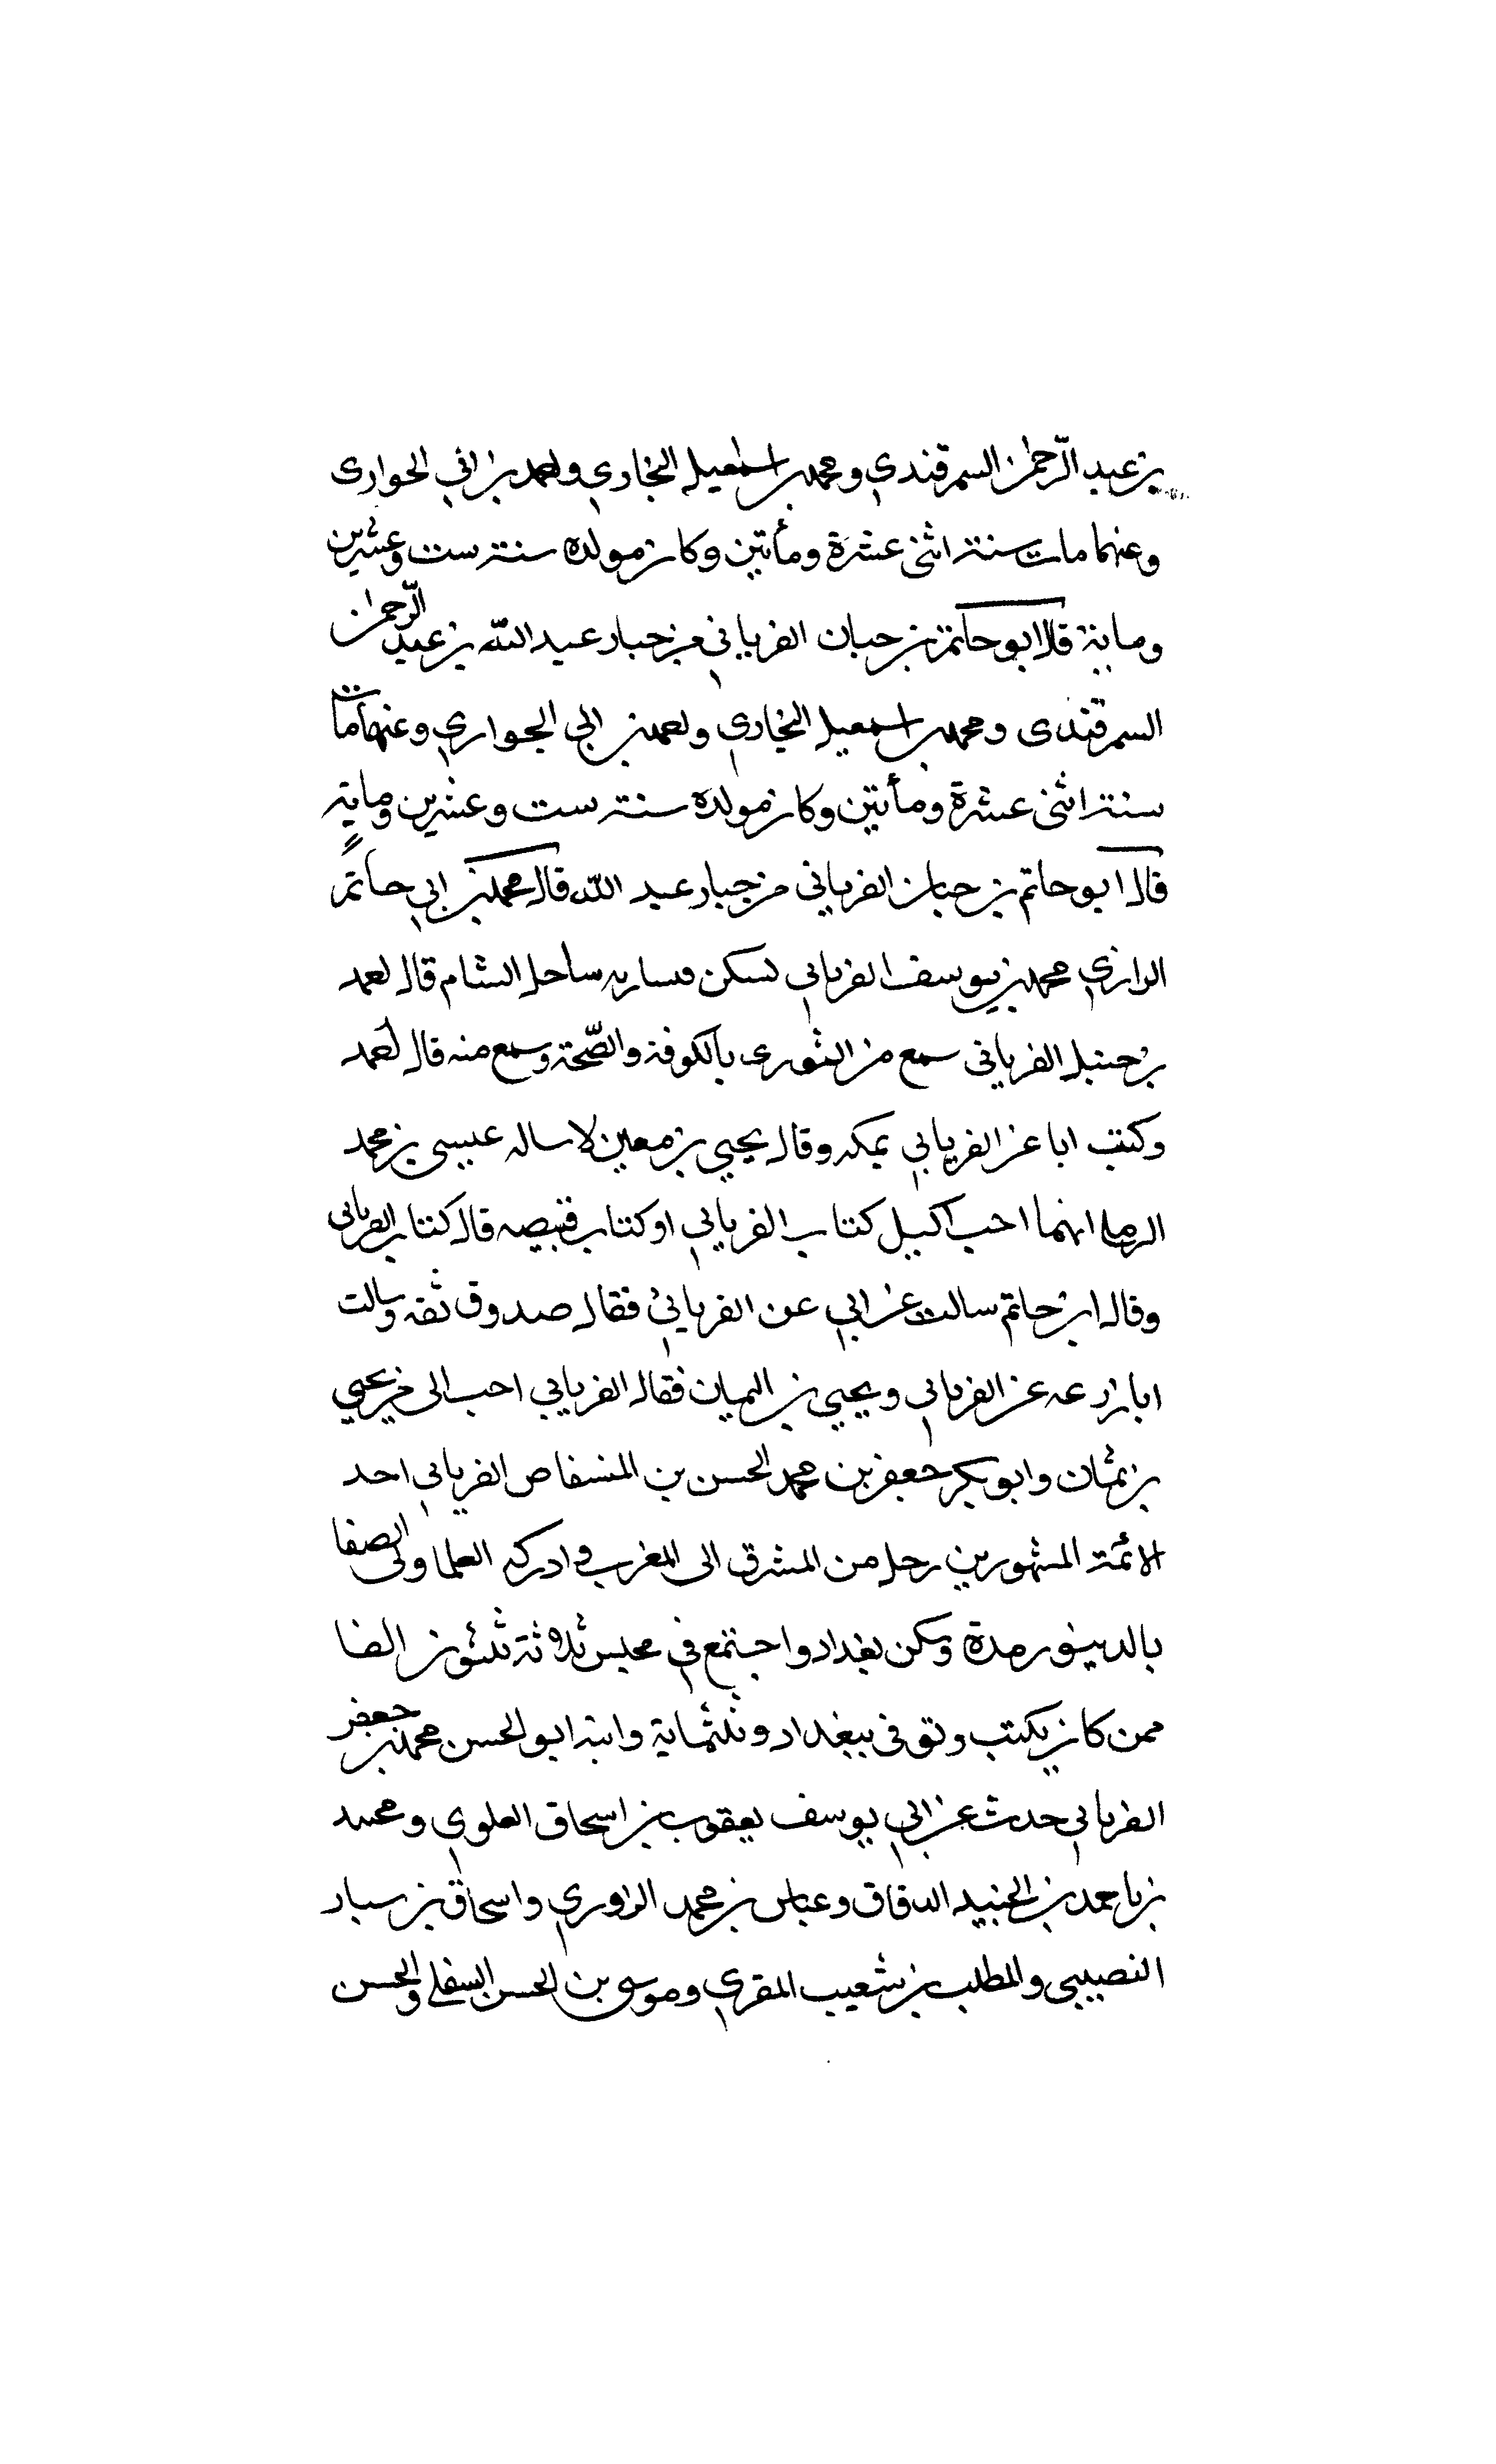 بن عبد الرّحمن السمرقندي ومحمد بن اسمعيل البخاري واحمد بن ابي الحوارى
وعنهما مات سنة اثنى عشرة ومأتين وكان مولده سنة ست وعشرين
وماية قال ابو حاتم بن حبان الفريانى من خيار عبد الله بن عبد الرّحمن
السمرقندى ومحمد بن اسمعيل البخاري واحمد بن ابي الجواري وعنهما مات
سنة اثنى عشرة ومأتين وكان مولده سنة ست وعشرين وماية
قال ابو حاتم بن حبان الفرياني من خيار عبد الله قال محمد بن ابي حاتم
الرازي محمد بن يوسف الفريابي سكن مساريه ساحل الشام قال احمد
بن حنبل الفرياني سمع من الثورى بالكوفة والصّحة وسمع منه قال احمد
وكتب ابا عن الفريابي بمكه وقال يحيي بن معين لا ساله عيسى بن محمد
الرملى ايهما احب اليك كتاب الفريابي او كتاب قبيصه قال كتاب الفريابى
وقال ابن حاتم سالت عن ابي عن الفريابي فقال صدوق ثقه وسالت
ابا زرعه عن الفريابى ويحيي بن اليمان فقال الفريابي احب الى من يحيي
بن يمان وابو بكر جعفر بن محمد الحسن بن المنسفاص الفريابي احد
الائمة المشهورين رحل من المشرق الى المغرب وادرك العلما وولى الصفا
بالدينور مدة وسكن بغداد واجتمع في مجلس ثلاثة ثلثون الفا
ممن كان يكتب وتوفى ببغداد وثلثماية وابنه ابو الحسن محمد بن جعفر
الفريابي حدث عن ابي يوسف يعقوب بن اسحاق العلوي ومحمد
بن احمد بن الجنيد الدقاق وعباس بن محمد الراوري واسحاق بن سيار
النصيبى والمطلب بن شعيب المقري وموسى بن الحسن السفلى والحسن